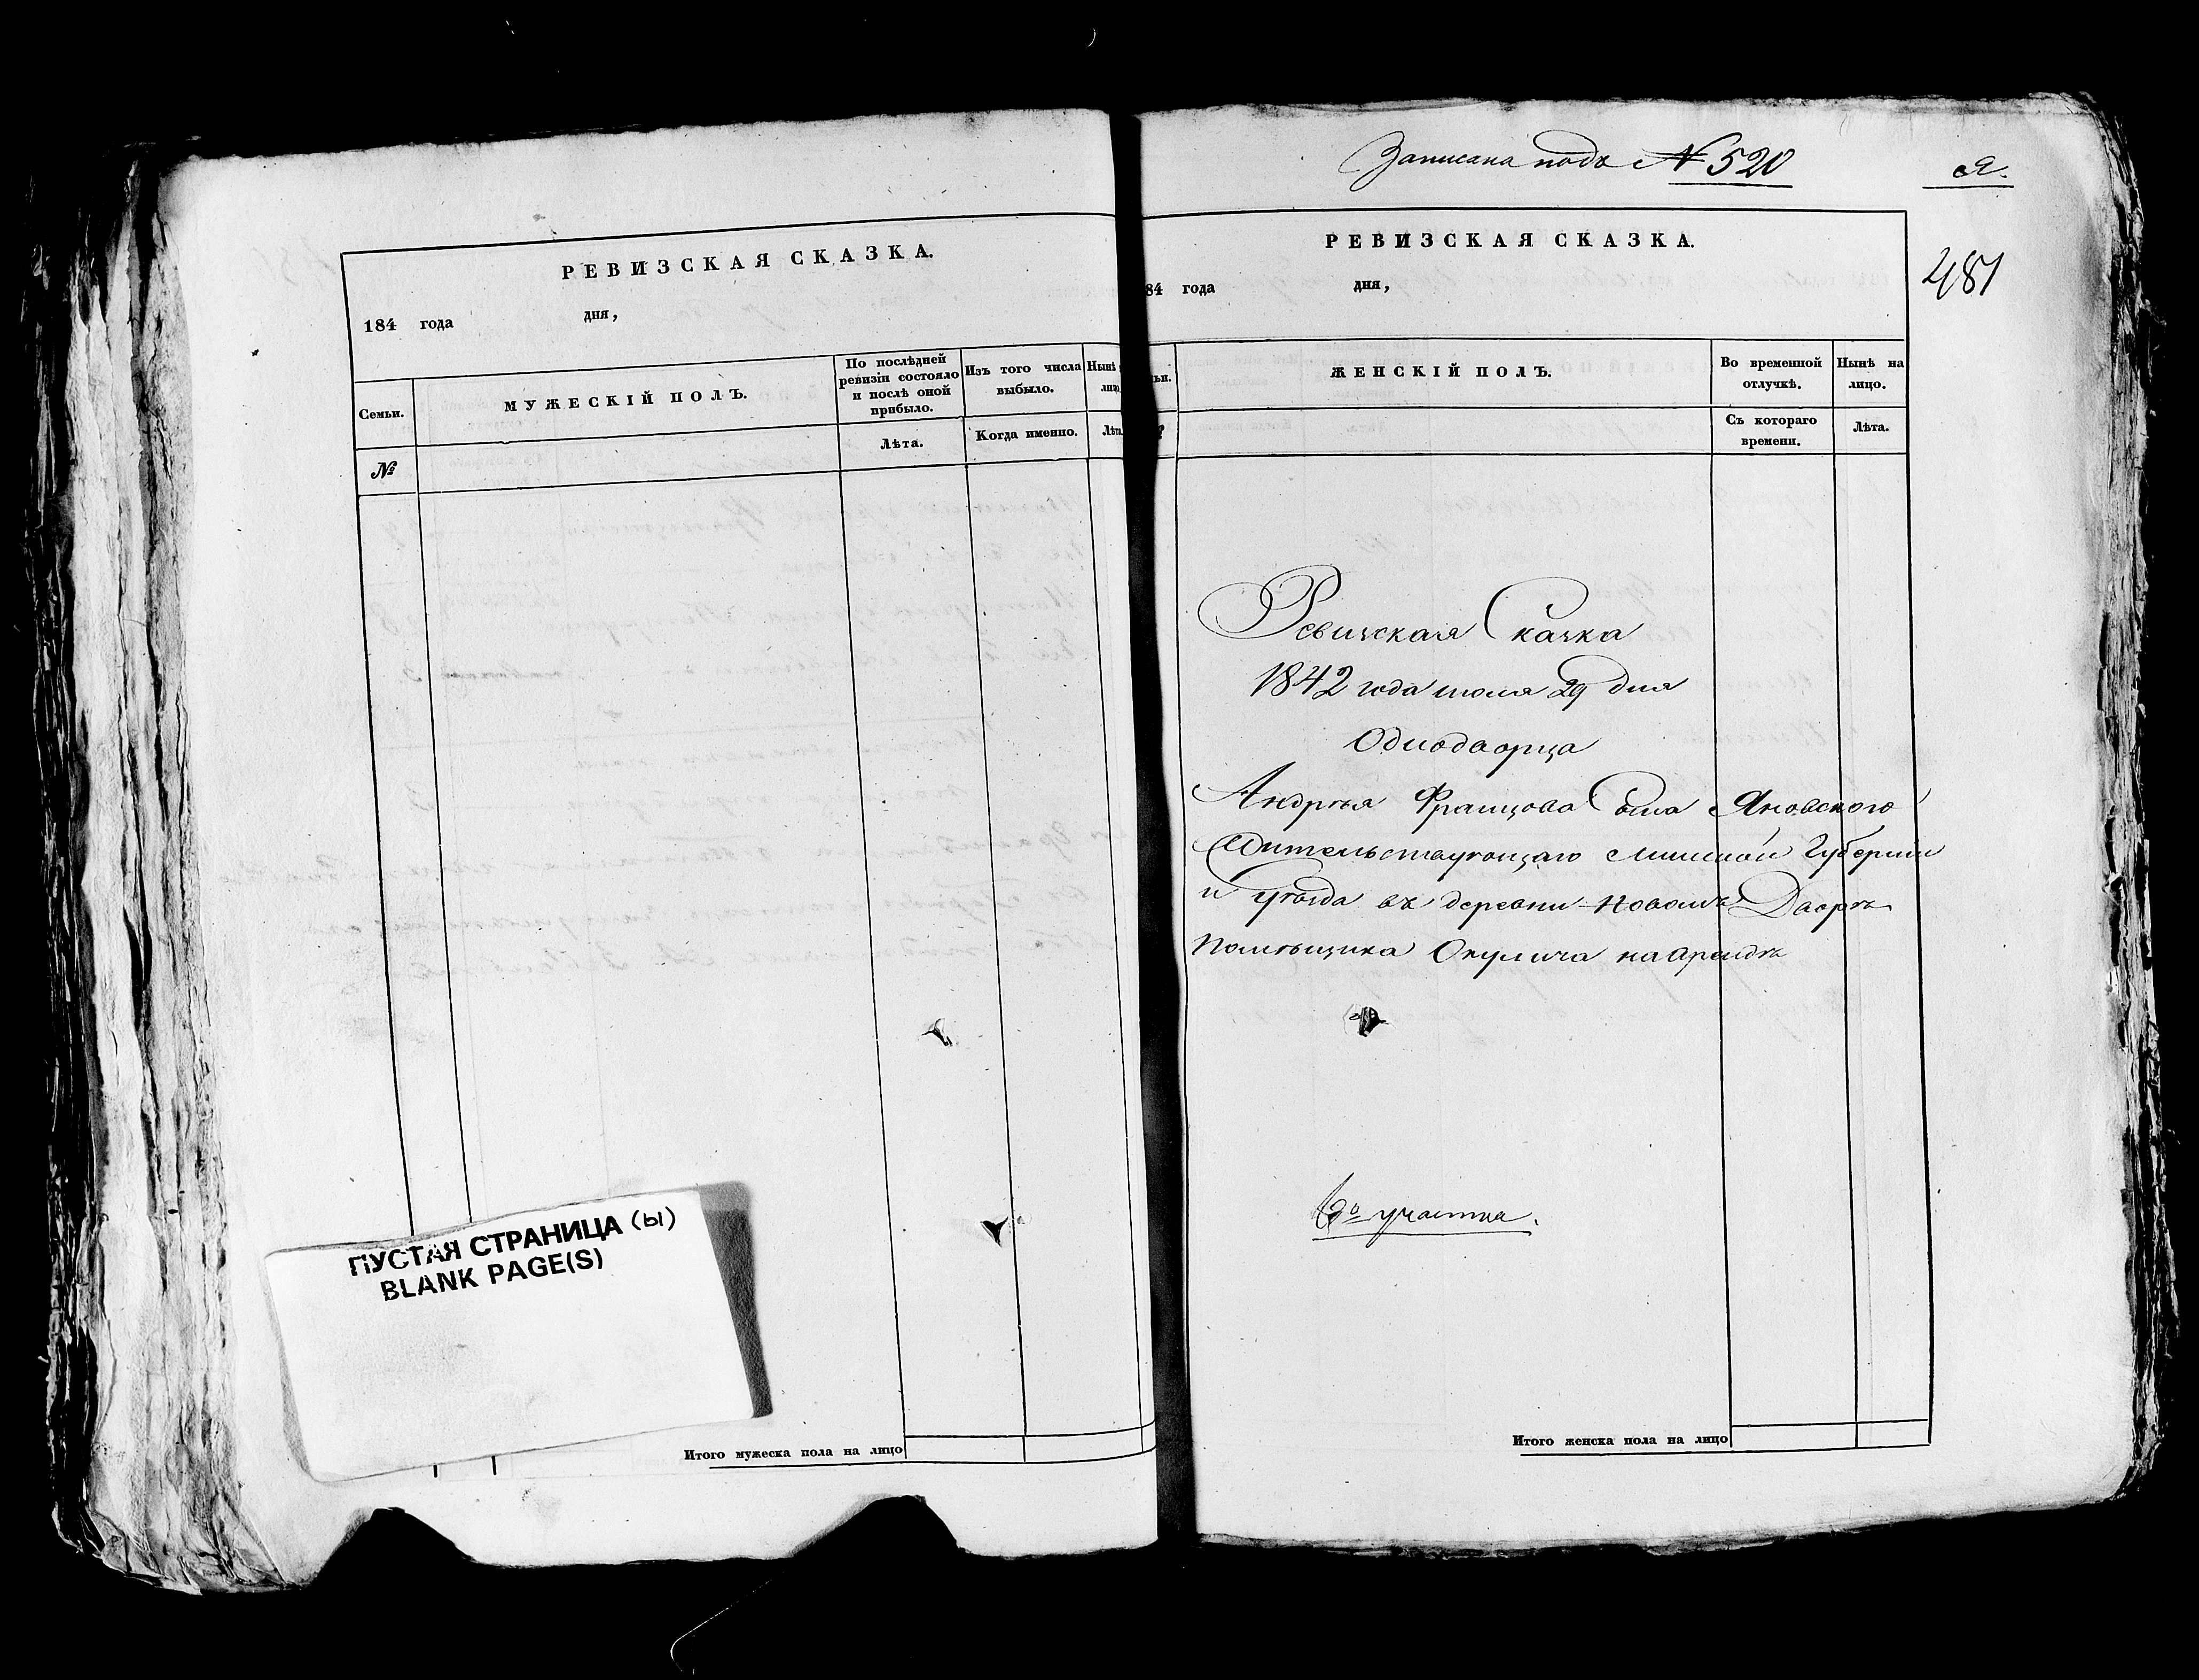 РЕВИЗСКАЯ СКАЗКА.
184 года дня,
Семьи.
МУЖЕСКІЙ ПОЛЪ.
По послѣдней
ревизіи состояло
и послѣ оной
прибыло.
Изъ того числа
выбыло.
Нынѣ
лицо
№
Лѣта.
Когда именно.
Лѣта
ПУСТАЯ СТРАНИЦА (Ы)
BLANK PAGE(S)
Итого мужеска пола на лицо
Записана подъ № 520
Я.
481
РЕВИЗСКАЯ СКАЗКА.
84 года дня,
ьи.
ЖЕНСКІЙ ПОЛЪ.
Во временной
отлучкѣ.
Нынѣ на
лицо.
Съ котораго
времени.
Лѣта.
Ревизская Сказка
1842 года июля 29 дня
Однодворца
Андрѣя Францова Сына Яновского
Жительствующаго Минской Губернии
и уѣзда въ деревни Новомъ Дворѣ
Помѣщика Окулича на арендѣ
участка.
Итого женска пола на лицо